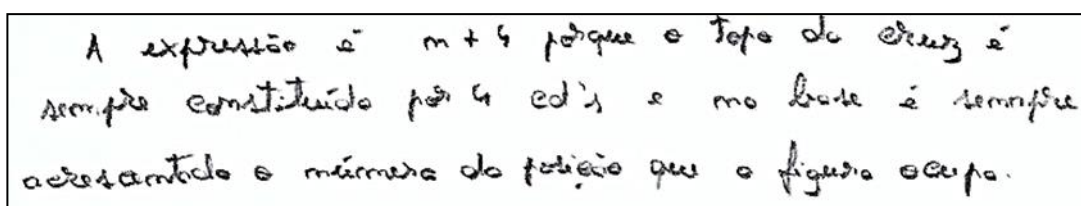 A expressão é n + 4 porque o topo da cruz é
sempre constituído por 4 cd's e na base é sempre
acresentado o número da posição que a figura ocupa.